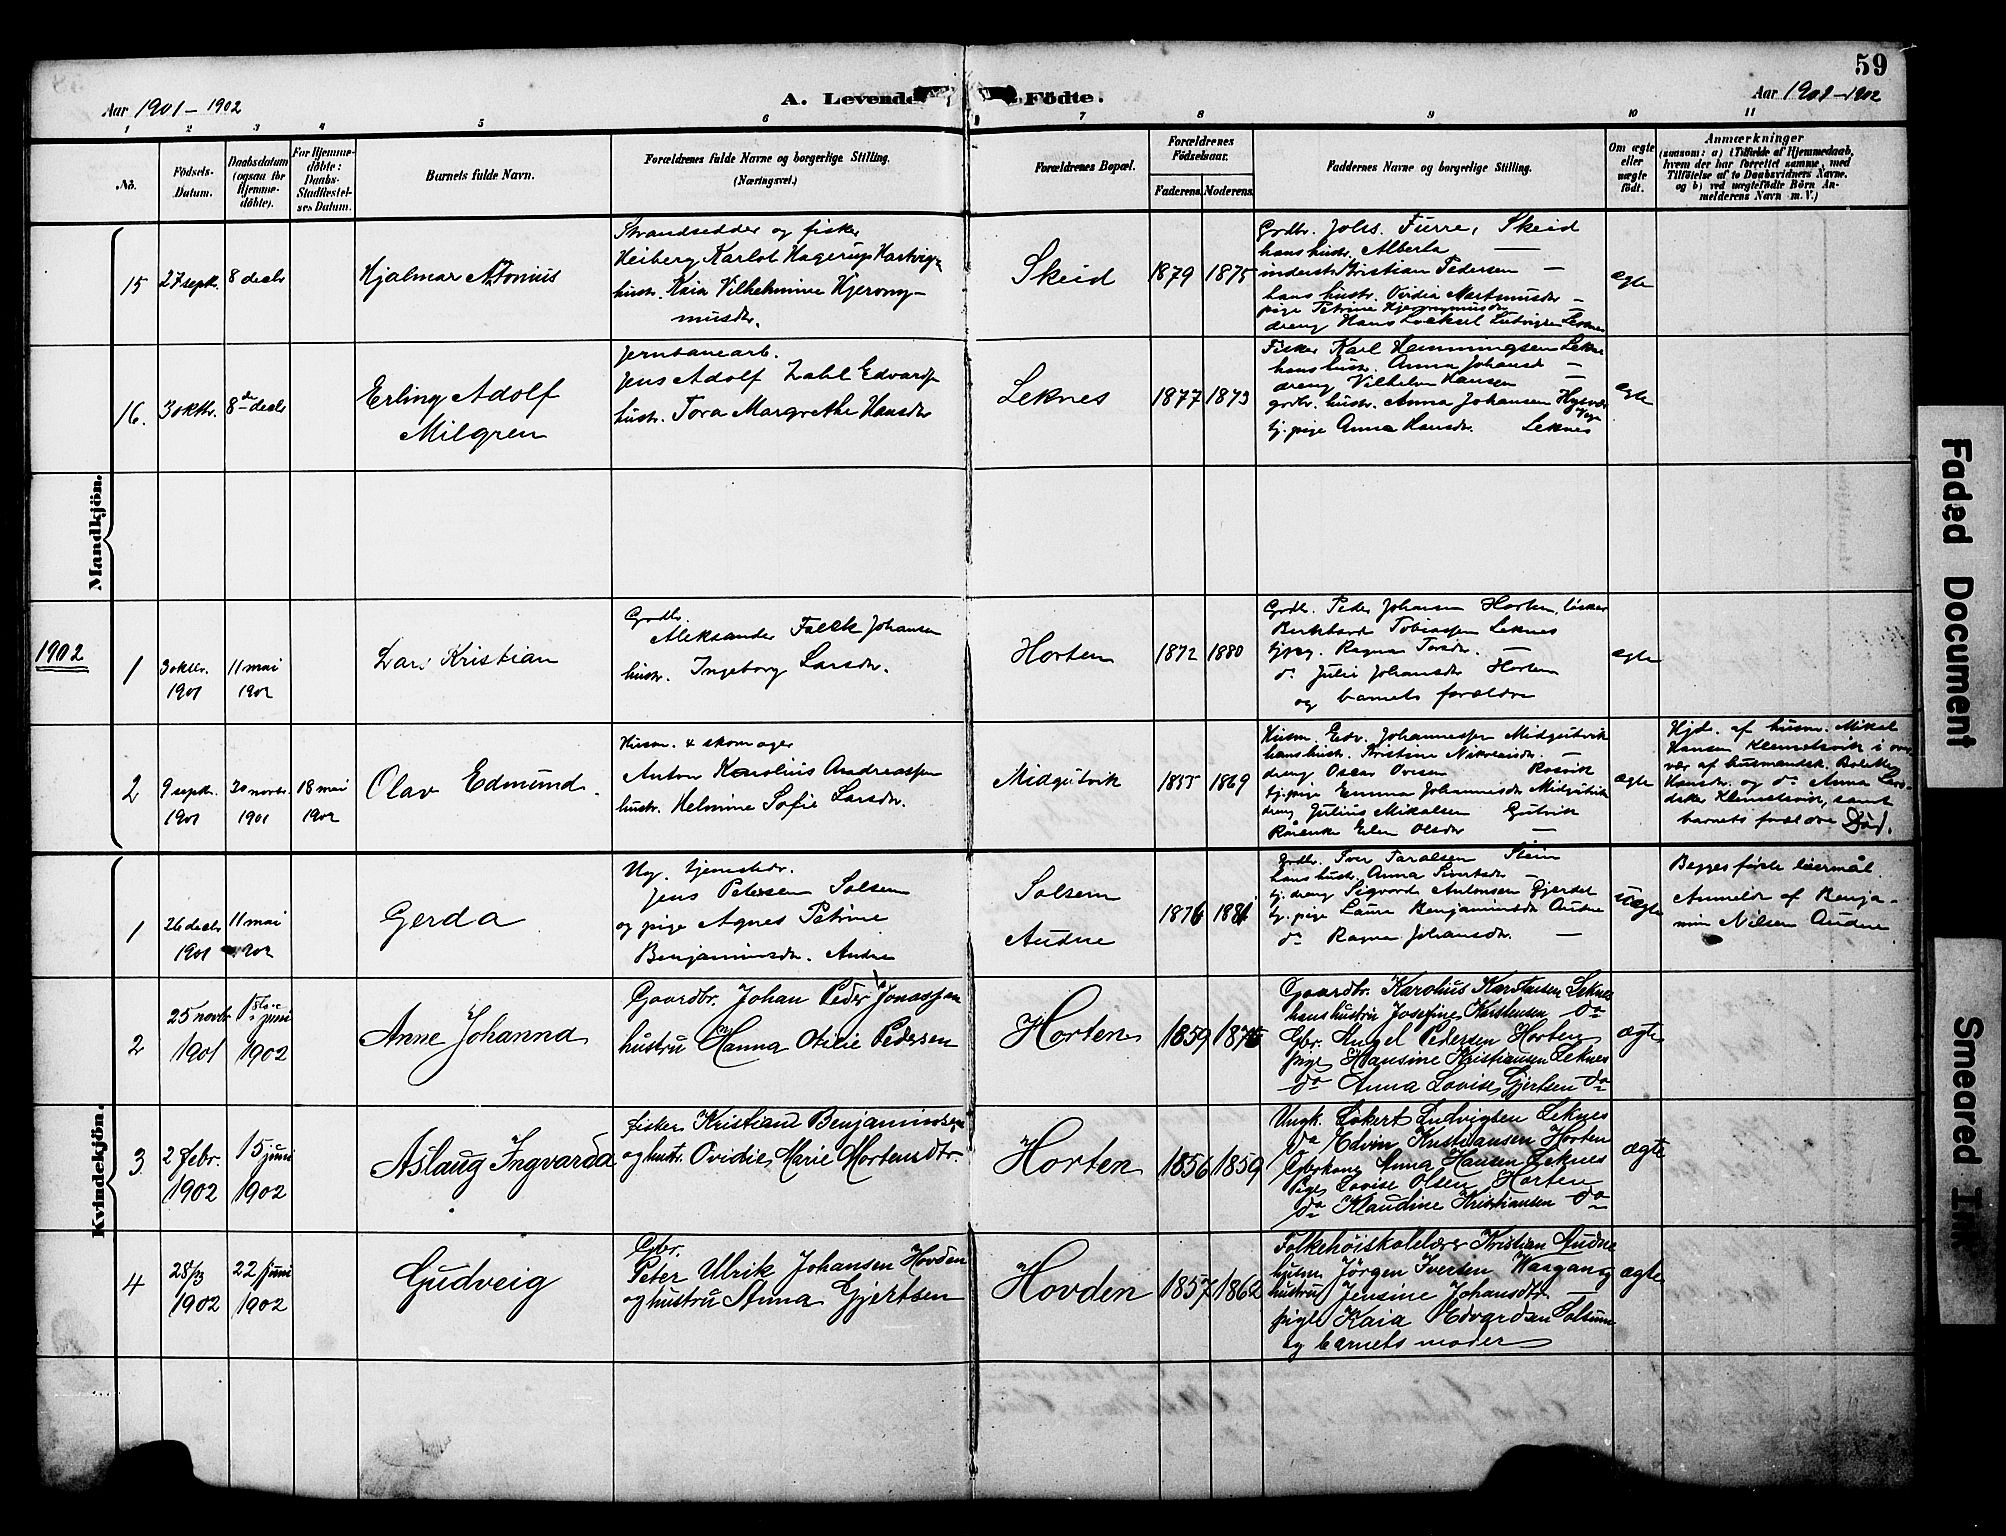 59
Aar 1901 – 1902
A. Levende Födte.
Aar 1901 – 1902
1 2 3 4 5 6 7 8 9 10 11
No.
Födsels-Datum.
Daabsdatum (ogsaa for Hjemme-döbte).
For Hjemme-döbte: Daabs-Stadfæstel-ses Datum.
Barnets fulde Navn.
Forældrenes fulde Navne og borgerlige Stilling.
(Næringsvei.)
Forældrenes Bopæl.
Forældrenes Födselsaar.
Faderens. Moderens.
Faddernes Navne og borgerlige Stilling.
Om ægte eller uægte födt.
Anmærkninger
(saasom: a) i Tilfælde af Hjemmedaab, hvem der har forrettet samme, med Tilföielse af to Daabsvidners Navne. og b) ved uægtefödte Börn An-melderens Navn m. V.)
Mandkjön.
15
27 sept.
8 decb
Hjalmar Antonius
Strandsidder og fisker
Heiberg Karlot Hagerup Hartvig-
hustr. Kaia Vilhelmine Hjerony-
musdtr.
Skeid
1879 1875
Grdbr. Johs. Furre, Skeid
hans hustr. Alberta —
inderst Kristian Pedersen —
hans hustr.
pige Petrine Hjeronymusdtr —
dreng Hans
ægte
16.
3 oktbr.
8de decb
Erling Adolf
Milgren
Jernbanearb.
Jens Adolf Zahl Edvards
hustr. Tora Margrethe Hansdtr
Leknes
1877 1873
Fisker Karl Hemmingsen Leknes
hans hustr. Anna Johansd —
dreng Vilhelm Hansen
grdbr. hustr. Anna Johansen
tj. pige Anna Hansdtr. Leknes
ægte
1902
1
3 oktbr.
1901
11 mai
1902
Lars Kristian
Grdbr.
Aleksander Falck Johansen
hustr. Ingeborg Larsdtr.
Horten
1872 1880
Grdbr. Peder Johansen Horten, fisker
Tobiassen Leknes
Ragna —
do Julie Johansdtr Horten
og barnets forældre
ægte
2
9 sept.
1901
20 novbr.
1901
18 mai
1902
Olav Edmund.
Husm. & skomager
Anton Karolius Andreassen
hustr. Helmine Sofie Larsdtr.
Midgutvik
1855 1869
Husm. Edv. Johannessen Midgutvik
hans hustr. Kristine —
dreng Oscar Rosvik
tj. pige Emma Johannesdtr Midgutvik
dreng Julius Mikalsen Gutvik
Elen Olsdtr —
ægte
Hjd. af husm. Mikal
Hansen Klemetsvik i over
vær af husmandsk.
Hansdtr. og do Anna
Klemetsvik, samt
barnets forældre Död.
Kvindekjön.
1
26 decb
1901
11 mai
1902
Gerda
Ug. tjenestedr.
Jens Petersen Solsem
og pige Agnes Petrine
Benjaminsdtr. Audne
Solsem
Audne
1876 1881
Grdbr. Iver Stein
hans hustr. Anna Sivertsdr —
tj. dreng Sigvard Antonsen Gjerdet
tj. pige Laura Benjaminsdr Audne
do Ragna Johansdr. —
uægte
Begges første leiermål.
Anmeldt af Benja-
min Nilsen Audne
2
25 novbr
1901
1ste juni
1902
Anne Johanna
Gaardbr. Johan Peder Jonassen
hustru Hanna Otilie Pedersen
Horten
1859 1875
Gaardbr. Karolius Karstensen Leknes
hans hustru Josefine Karstensen do
Gbr. Angel Pedersen Horten
pige Hansine Kristiansen Leknes
do Anna Lovise Gjertsen do
ægte
3
2 febr.
1902
15 juni
1902
Aslaug Ingvarda
fisker Kristian Benjaminsen
og hustr. Ovidie Marie Mortensdtr.
Horten
1856 1859
Ungk. Lokert Ludvigsen Leknes
do Edvin Kristiansen Horten
Gbrkone Anna Hansen Leknes
Pige Lovise Olsen Horten
do Klaudine Kristiansen do
ægte
4
28/3
1902
22 juni
1902
Gudveig
Gbr.
Peter Ulrik Johansen Hovden
og hustru Anna Gjertsen
Hovden
1857 1862
Folkehöiskolelærer Kristian Audne
husm. Jörgen Iversen
hustru Jensine Johansdtr —
pige Kaia Edvardsen Solsem
og barnets moder
ægte
Faded Document
Smeared Ink